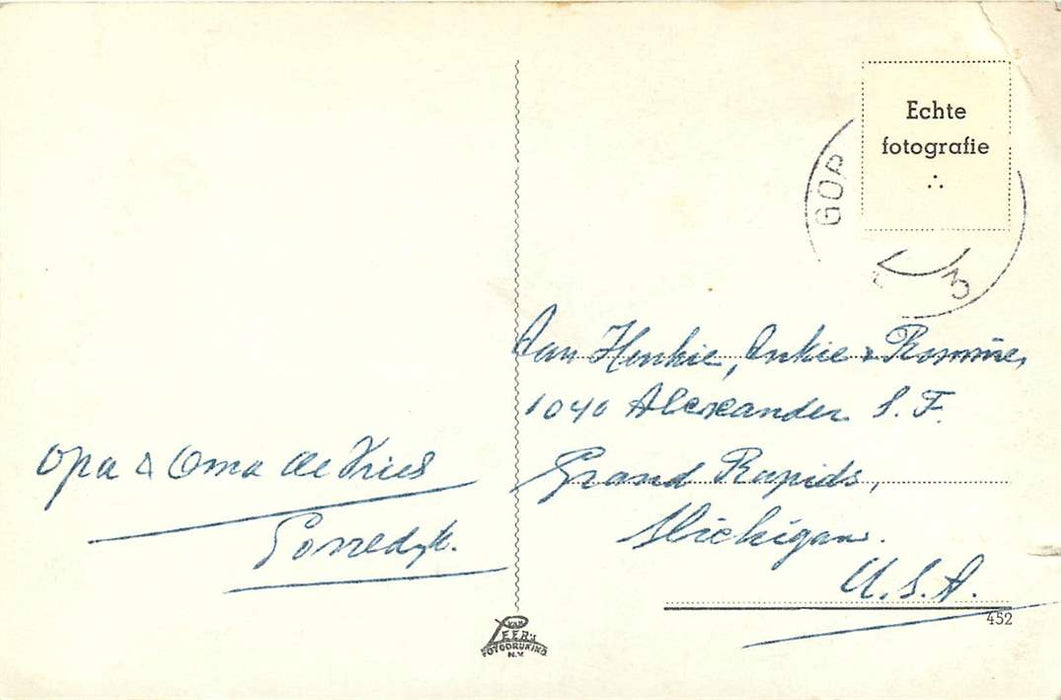 Opa & Oma de Vries
Gorredyk.
Echte
fotografie
GOR
Aan Henkie, Ankie & Rommie,
1040 Alexander S. F.
Grand Rapids,
Michigan.
U.S.A.
452
VAN
LEER'S
FOTODRUKIND
N.V.